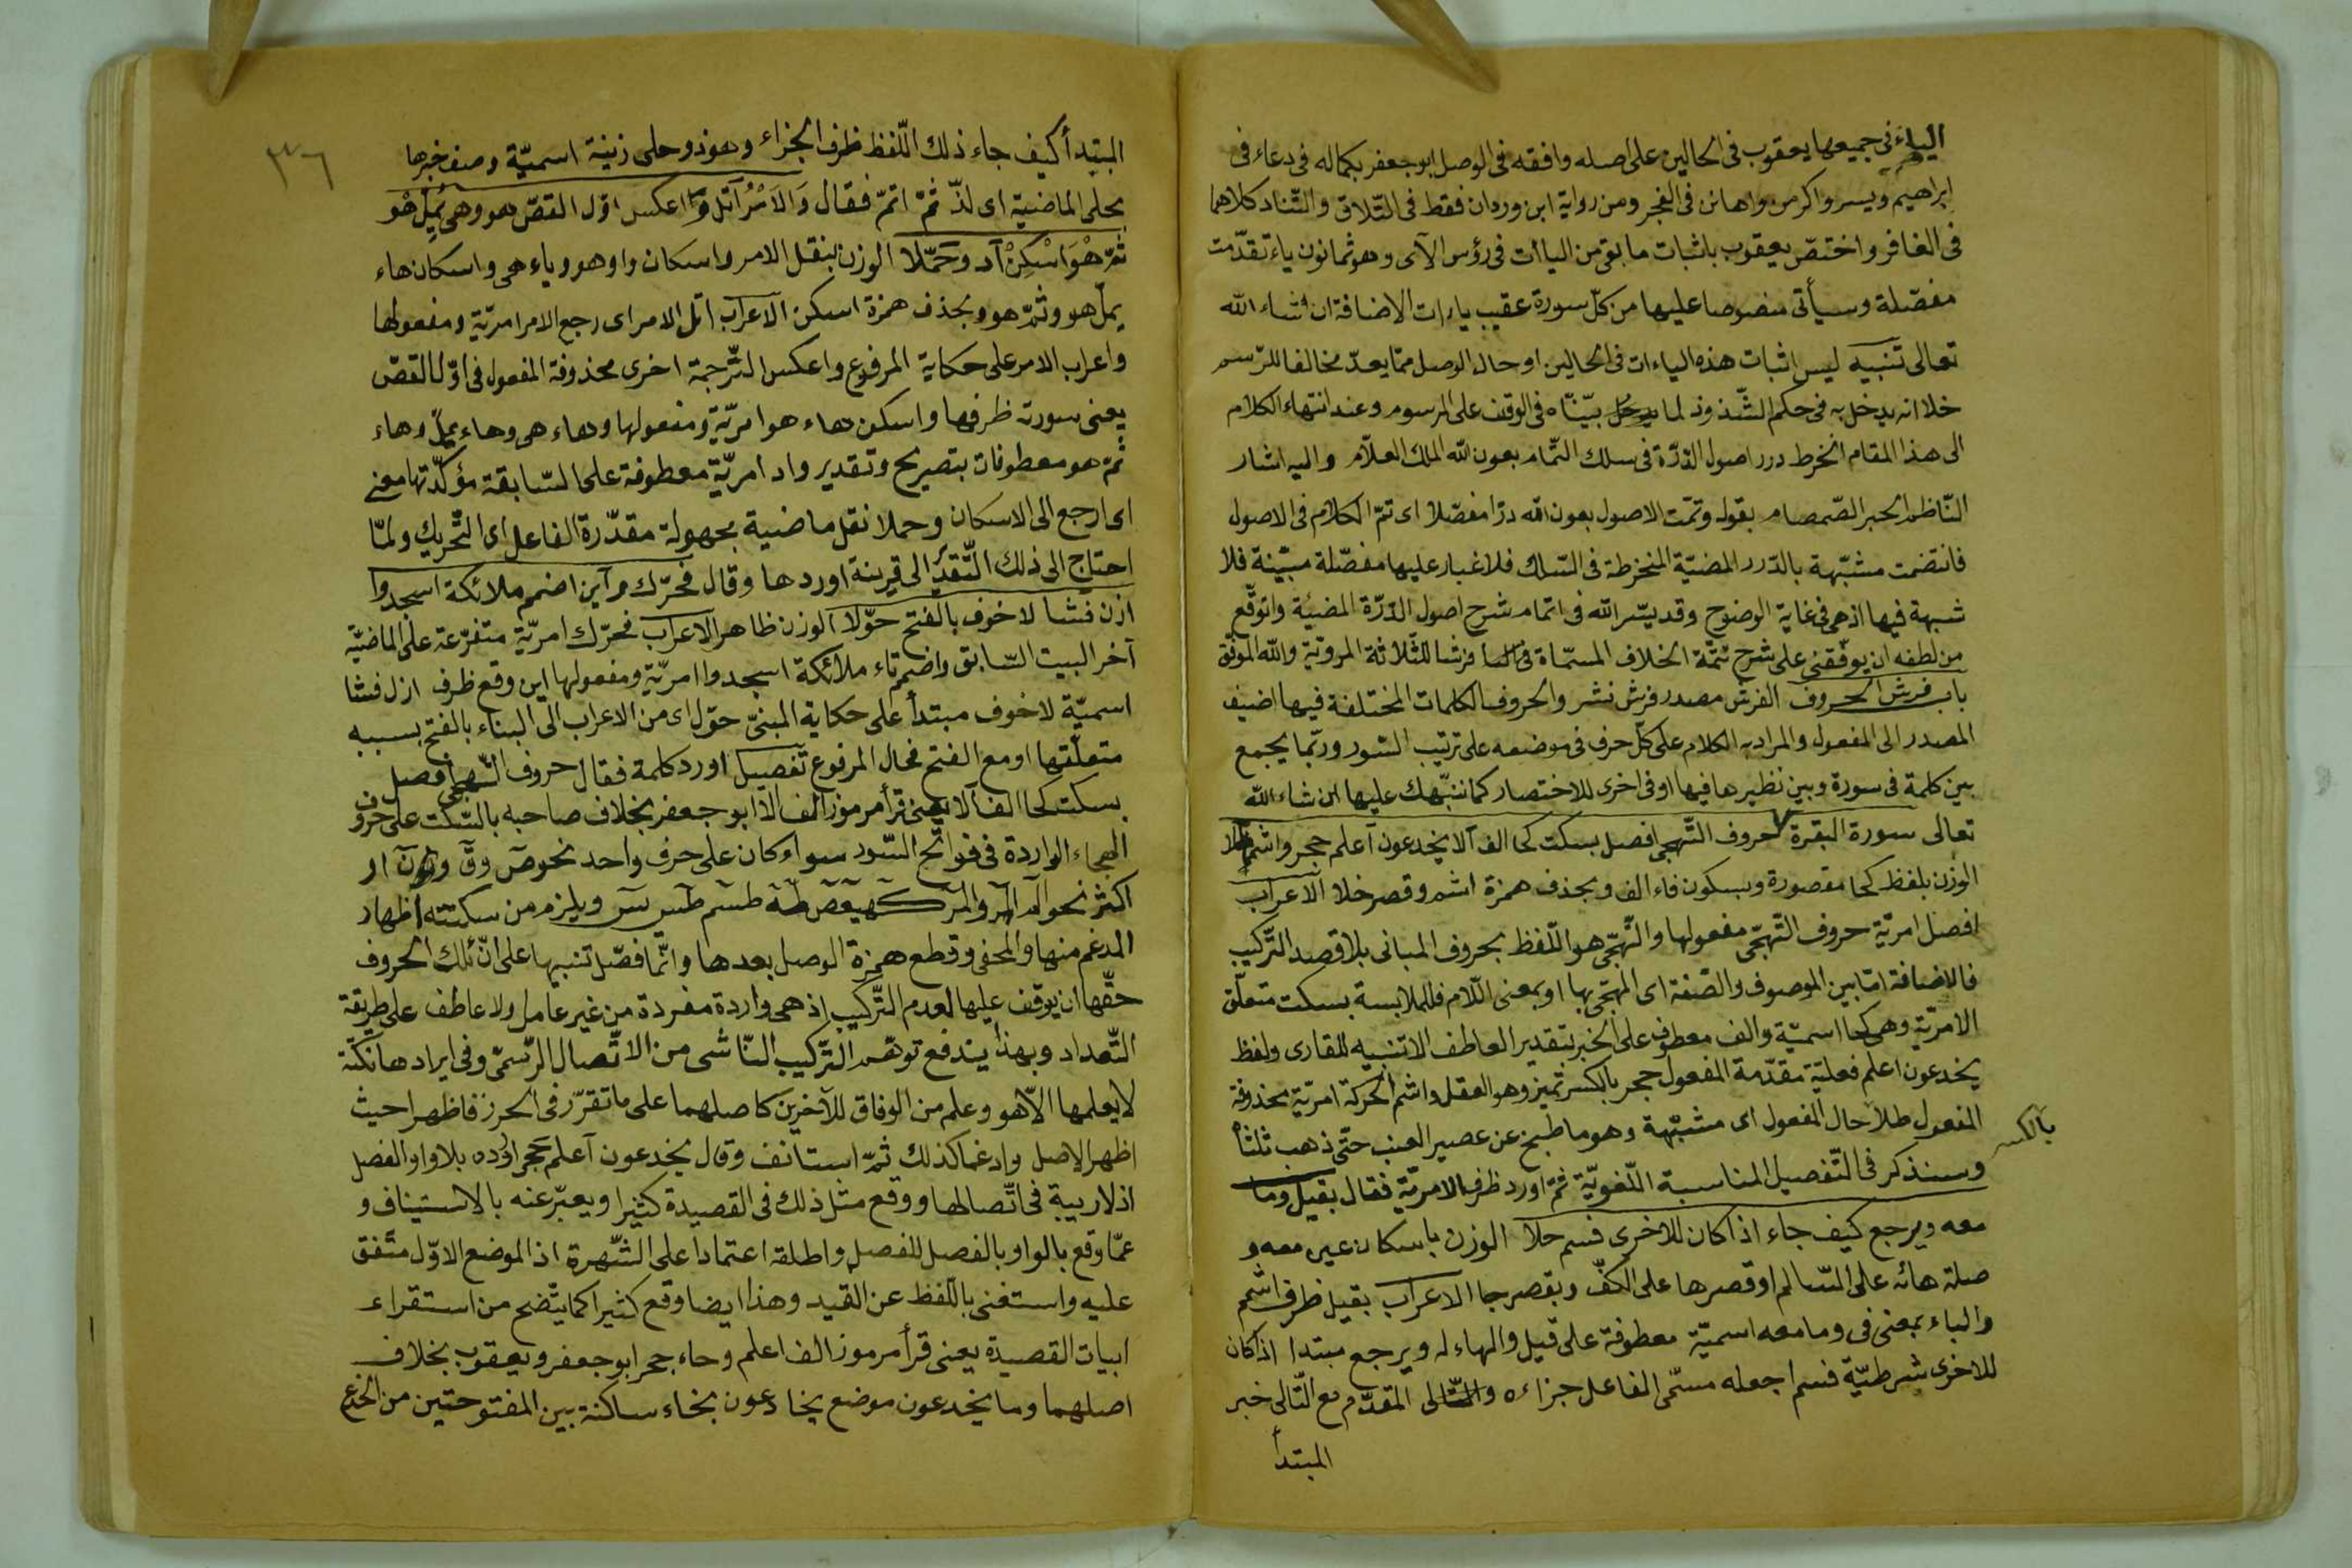 الياء فى جميعها يعقوب فى الحالين على اصله وافقه فى الوصل ابو جعفر بكماله فى دعاء فى
ابراهيم ويسر واكرمن واهانن فى الفجر ومن رواية ابن وردان فقط فى التّلاق والتّناد كلاهما
فى الغافر واختصّ يعقوب باثبات ما بقى من الياات فى رؤس الآى وهو ثمانون ياء تقدّمت
مفصّلة وسيأتى منصوصا عليها من كلّ سورة عقيب ياءات الاضافة ان شاء الله
تعالى تنبيه ليس اثبات هذه الياءات فى الحالين او حال الوصل ممّا يعدّ مخالفا للرّسم
خلا انه يدخل به فى حكم الشّذوذ لما بيّنّاه فى الوقف على المرسوم وعند انتهاء الكلام
الى هذا المقام انخرط درر اصول الدّرّة فى سلك التّمام بعون الله الملك العلّام واليه اشار
النّاظم الحبر الصّمصام بقوله وتمّت الاصول بعون الله درّا مفصّلا اى تمّ الكلام فى الاصول
فانتضمت مشبّهة بالدّرر المضيّة المنخرطة فى السّلك فلا غبار عليها مفصّلة مبيّنة فلا
شبهة فيها اذ هى فى غاية الوضوح وقد يسّر الله فى اتمام شرح اصول الدّرّة المضيّة واتوقّع
من لطفه ان يوفّقنى على شرح تتمّة الخلاف المسمّاة فرشا للثّلاثة المرويّة والله الموفّق
باب فرش الحروف الفرش مصدر فرش نشر والحروف الكلمات المختلفة فيها اضيف
المصدر الى المفعول والمراد به الكلام على كلّ حرف فى موضعه على ترتيب السّور وربّما يجمع
بين كلمة فى سورة وبين نظيرها فيها او فى اخرى للاختصار كما ننبّهك عليها ان شاء الله
تعالى سورة البقرة حروف التّهجى افصل بسكت كحا الف آلا يخدعون آعلم حجر واشمم طلا
الوزن بلفظ كحا مقصورة وبسكون فاء الف وبحذف همزة اشم وقصر خلا الاعراب
افصل امريّة حروف التّهجّى مفعولها والتّهجّى هو التّلفّظ بحروف المبانى بلا قصد التّركيب
فالاضافة امّا بين الموصوف والصّفة اى المهجّى بها او بمعنى اللّام فللملابسة بسكت متعلّق
الامريّة وهى كحا اسميّة والف معطوف على الخبر بتقدير العاطف الا تنبيه للقارى ولفظ
يخدعون اعلم فعليّة مقدّمة المفعول حجر بالكسر تميز وهو العقل واشم الحركة امريّة محذوفة
المفعول طلا حال المفعول اى مشبّهة وهو ما طبخ عن عصير العنب حتّى ذهب ثلثاه
بالكسر
وسنذكر فى التّفصيل المناسبة اللّغويّة ثمّ اورد ظرف الامريّة فقال بقيل وما
معه ويرجع كيف جاء اذا كان للاخرى فسم حلا الوزن باسكان عين معه و
صلة هائه على السّالم او قصرها على الكفّ وبقصر جا الاعراب بقيل ظرف اشمم
والباء بمعنى فى وما معه اسميّة معطوفة على قيل والهاء له ويرجع مبتدا اذ كان
للاخرى شرطيّة فسم اجعله مسمّى الفاعل جزاءه والتّالى المقدّم مع التّالى خبر
المبتدأ
٣٦
المبتدأ كيف جاء ذلك اللّفظ ظرف الجزاء وهو ذو حلى زينة اسميّة وصف خبرها
بحلى الماضية اى لذّ ثمّ اتمّ فقال وَالاَمْرُ آتل واعكس اوّل القصّ هو وهى يُمِلّ هُو
ثمّ هْوَ اسْكِنْ آد وحَمّلا الوزن بنقل الامر واسكان واو هو وياء هى واسكان هاء
يملّ هو وثمّ هو وبحذف همزة اسكن الاعراب اتل الامر اى رجع الامر امريّة ومفعولها
واعراب الامر على حكاية المرفوع واعكس التّرجمة اخرى محذوفة المفعول فى اوّل القصّ
يعنى سورته ظرفها واسكن هاء هو امريّة ومفعولها وهاء هى وهاء يملّ وهاء
ثمّ هو معطوفات بتصريح وتقدير واد امريّة معطوفة على السّابقة مؤكّدتها معنى
اى ارجع الى الاسكان وحملا نقل ماضية مجهولة مقدّرة الفاعل اى التّحريك ولمّا
احتاج الى ذلك التّقدير الى قرينة اوردها وقال فحرّك واين اضمم ملائكة اسجدوا
ازل فشا لا خوف بالفتح حوّلا الوزن ظاهر الاعراب فحرّك امريّة متفرّعة على الماضيّة
آخر البيت السّابق واضمم تاء ملائكة اسجدوا امريّة ومفعولها اين وقع ظرف ازل فشا
اسميّة لا خوف مبتدأ على حكاية المبنىّ حوّل اى من الاعراب الى البناء بالفتح بسببه
متعلّقها او مع الفتح فحال المرفوع تفصيل اورد كلمة فقال حروف التّهجى افصل
بسكت كحا الف آلا يعنى قرأ مرموز الف الا ابو جعفر بخلاف صاحبه بالسّكت على حروف
الهجاء الواردة فى فواتح السّور سواء كان على حرف واحد نحو صٓ وقٓ ونٓ او
اكثر نحو الٓم الٓر والٓمٓر كٓهيعٓصٓ طٰهٰ طسٓم طسٓ يسٓ ويلزم من سكته اظهار
المدغم منها والمخفى وقطع همزة الوصل بعدها وانّما فصّل تنبيها على انّ تلك الحروف
حقّها ان يوقف عليها لعدم التّركيب اذ هى واردة مفردة من غير عامل ولا عاطف على طريقة
التّعداد وبهذا يندفع توهّم التّركيب النّاشى من الاتّصال الرّسمىّ وفى ايرادها نكتة
لا يعلمها الّا هو وعلم من الوفاق للآخرين كاصلهما على ما تقرّر فى الحرز فاظهرا حيث
اظهر الاصل وادغما كذلك ثمّ استانف وقال يخدعون آعلم حجر اورده بلا واو الفصل
اذ لا ريبة فى اتّصالها ووقع مثل ذلك فى القصيدة كثيرا ويعبّر عنه بالاستيناف و
عمّا وقع بالواو بالفصل للفصل واطلقه اعتمادا على الشّهرة اذ الموضع الاوّل متّفق
عليه واستغنى باللّفظ عن القيد وهذا ايضا وقع كثيرا كما يتّضح من استقراء
ابيات القصيدة يعنى قرأ مرموز الف اعلم وحاء حجر ابو جعفر ويعقوب بخلاف
اصلهما وما يخدعون موضع يخادعون بخاء ساكنة بين المفتوحتين من الخدع